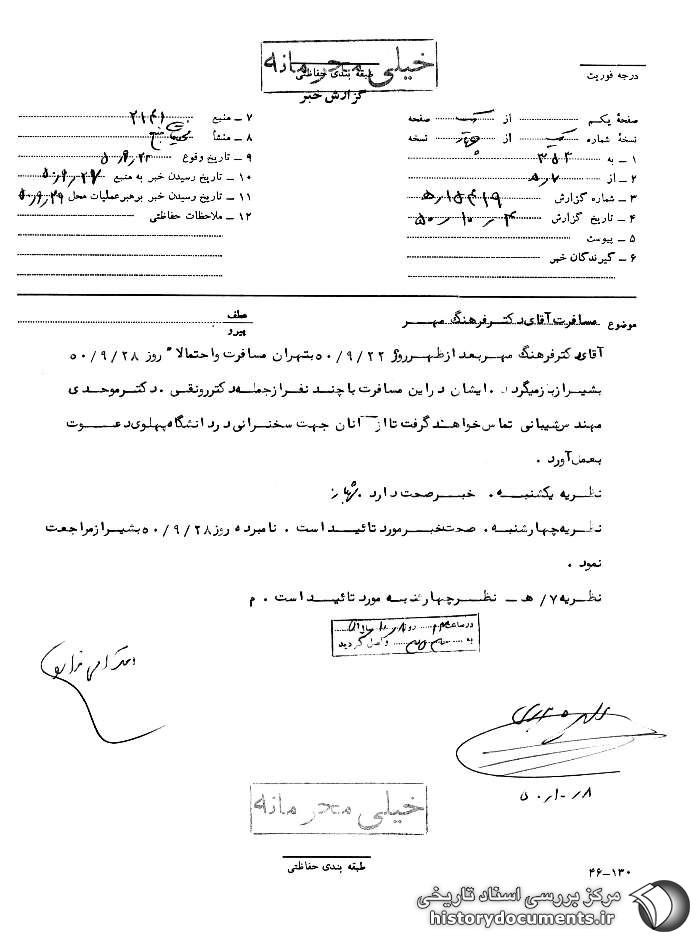 خیلی محرمانه
طبقه بندی حفاظتی
گزارش خبر
درجه فوریت
صفحهٔ یکم از یک صفحه
نسخهٔ شماره یک از چهار نسخه
۱ ـ به ۳۵۲
۲ ـ از ۷/ه
۳ ـ شماره گزارش ۱۵۴۱۹/ه
۴ ـ تاریخ گزارش ۴ـ۱۰ـ۵۰
۵ ـ پیوست
۶ ـ گیرندگان خبر
۷ ـ منبع ۲۱۴۱
۸ ـ منشأ منبع
۹ ـ تاریخ وقوع
۱۰ ـ تاریخ رسیدن خبر به منبع ۵۰/۹/۲۷
۱۱ ـ تاریخ رسیدن خبر برهبرعملیات محل ۵۰/۹/۲۹
۱۲ ـ ملاحظات حفاظتی
موضوع مسافرت آقای دکتر فرهنگ مهر
عطف
پیرو
آقای دکتر فرهنگ مهر بعد از ظهر روز ۵۰/۹/۲۲ بتهران مسافرت و احتمالا" روز ۵۰/۹/۲۸
بشیراز باز میگردد . ایشان در این مسافرت با چند نفر از جمله دکتر رونقی . دکتر موحدی
مهندس شیبانی تماس خواهند گرفت تا از آنان جهت سخنرانی در دانشگاه پهلوی دعوت
بعمل آورد .
نظریه یکشنبه . خبر صحت دارد .
نظریه چهارشنبه . صحت خبر مورد تائید است . نامبرده روز ۵۰/۹/۲۸ بشیراز مراجعت
نمود .
نظریه ۷/ هـ ـ نظر چهارشنبه مورد تائید است . م
در ساعت روز
به واصل گردید
۵۰/۱۰/۸
خیلی محرمانه
طبقه بندی حفاظتی
۴۶-۱۳۰
مرکز بررسی اسناد تاریخی
historydocuments.ir